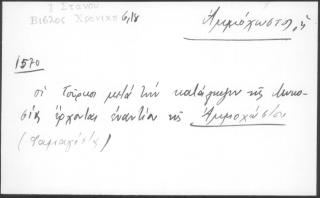 Ι Στάνου
Βίβλος Χρονικ 6,18
Ἀμμόχωστος, ἡ
1570
οἱ Τοῦρκοι μετὰ τὴν κατάληψιν τῆς Λευκω-
σίας ἔρχονται ἐναντίον τῆς Ἀμμοχώστου
(Φαμαγούστας)